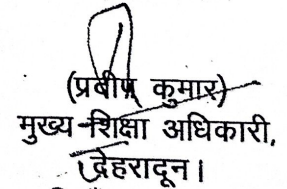 (प्रबीण कुमार)
मुख्य शिक्षा अधिकारी,
देहरादून।